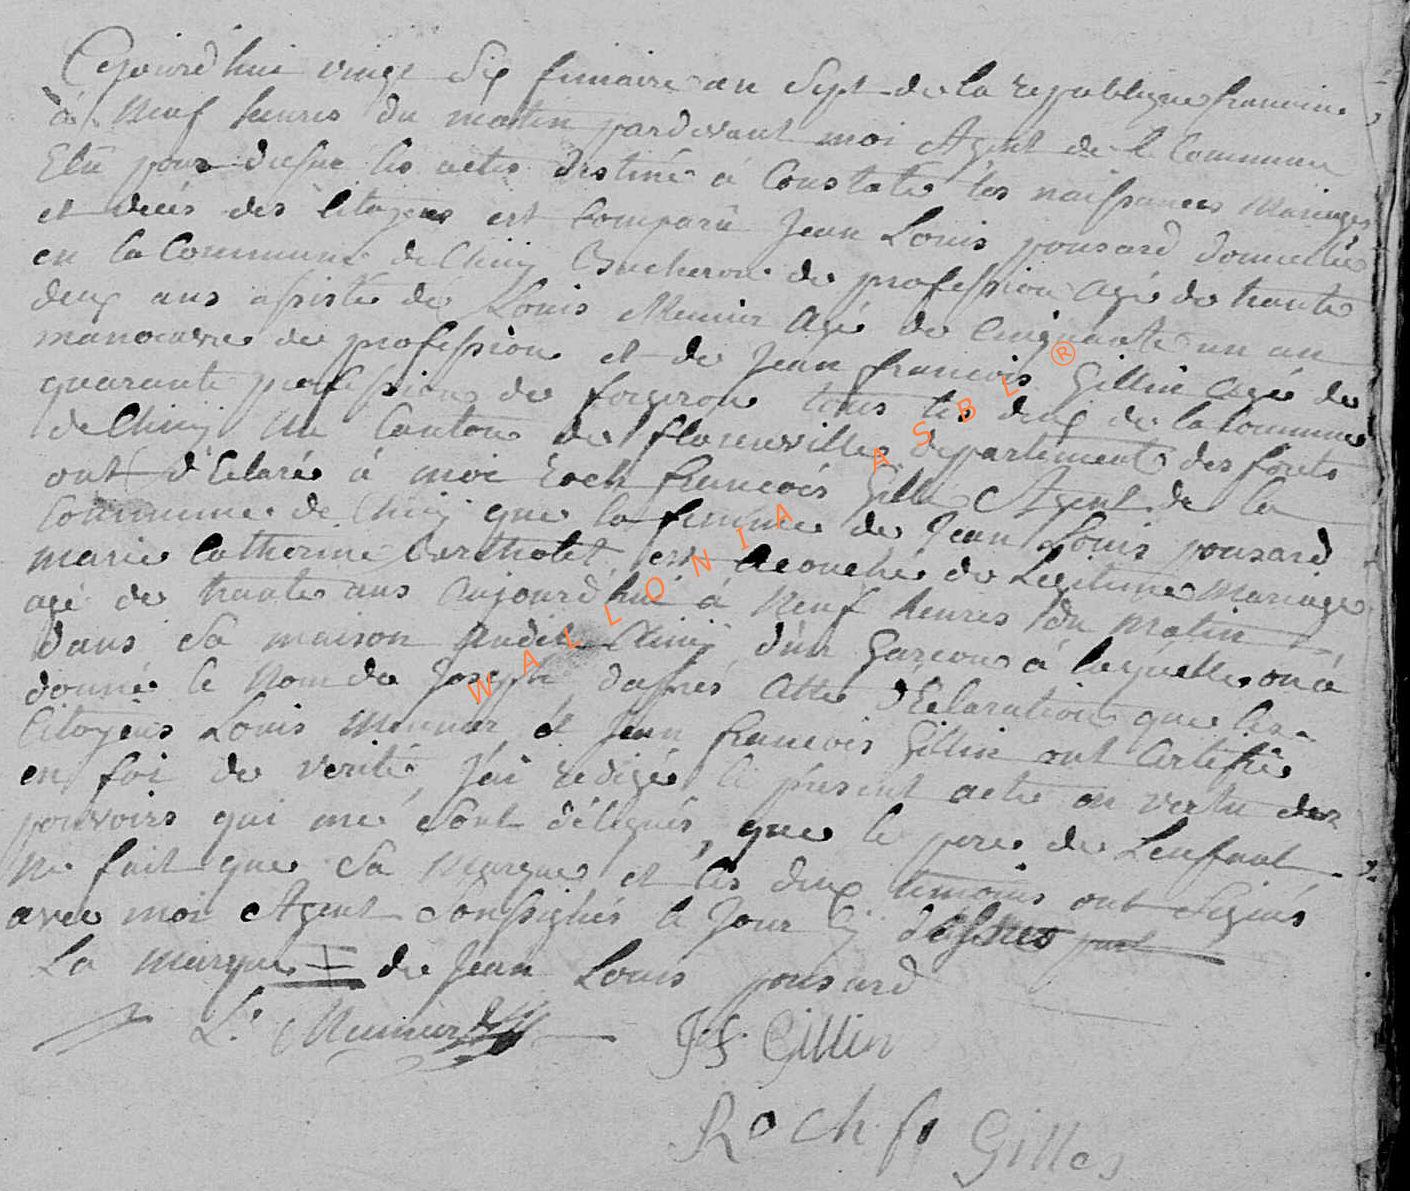 Cejourd'hui vingt Six frimaire an Sept de la republique francoise
à Neuf heures du matin pardevant moi Agent de la Commune
Elû pour les actes destiné à Constater les naissances Mariages
et décès des Citoyens est Comparû Jean Louis ponsard domicilié
en la Commune de Chiny Bucheron de profession agé de trente
deux ans assisté de Louis Meunier agé de Cinquante un an
manoeuvre de profession et de Jean francois Gillin agé de
quarante profession de forgeron tous les deux de la Commune
de Chiny Canton de florenville departement des forets
ont déClaré à moi Roch francois Gille Agent de la
Commune de Chiny que la femme de Jean Louis ponsard
marie Catherine Bertholet est acouché de Legitime Mariage
agé de trente ans aujourd'hui à Neuf heures du matin
dans Sa maison audit Chiny d'un Garçon à laquelle on à
donné le Nom de Joseph d'aprés Cette déClaration que les
Citoyens Louis Meunier et Jean francois Gillin ont Certifié
en foi de verité J'ai redigé le présent acte en vertu des
pouvoirs qui me Sont délégués, que le pere de Lenfant
Ne fait que Sa Marque et les deux temoins ont Signés
avec moi Agent Sousignés le Jour
La marque de Jean Louis ponsard
L. Meunier
J f Gillin
Roch fs Gilles
WALLONIA ASBL ®